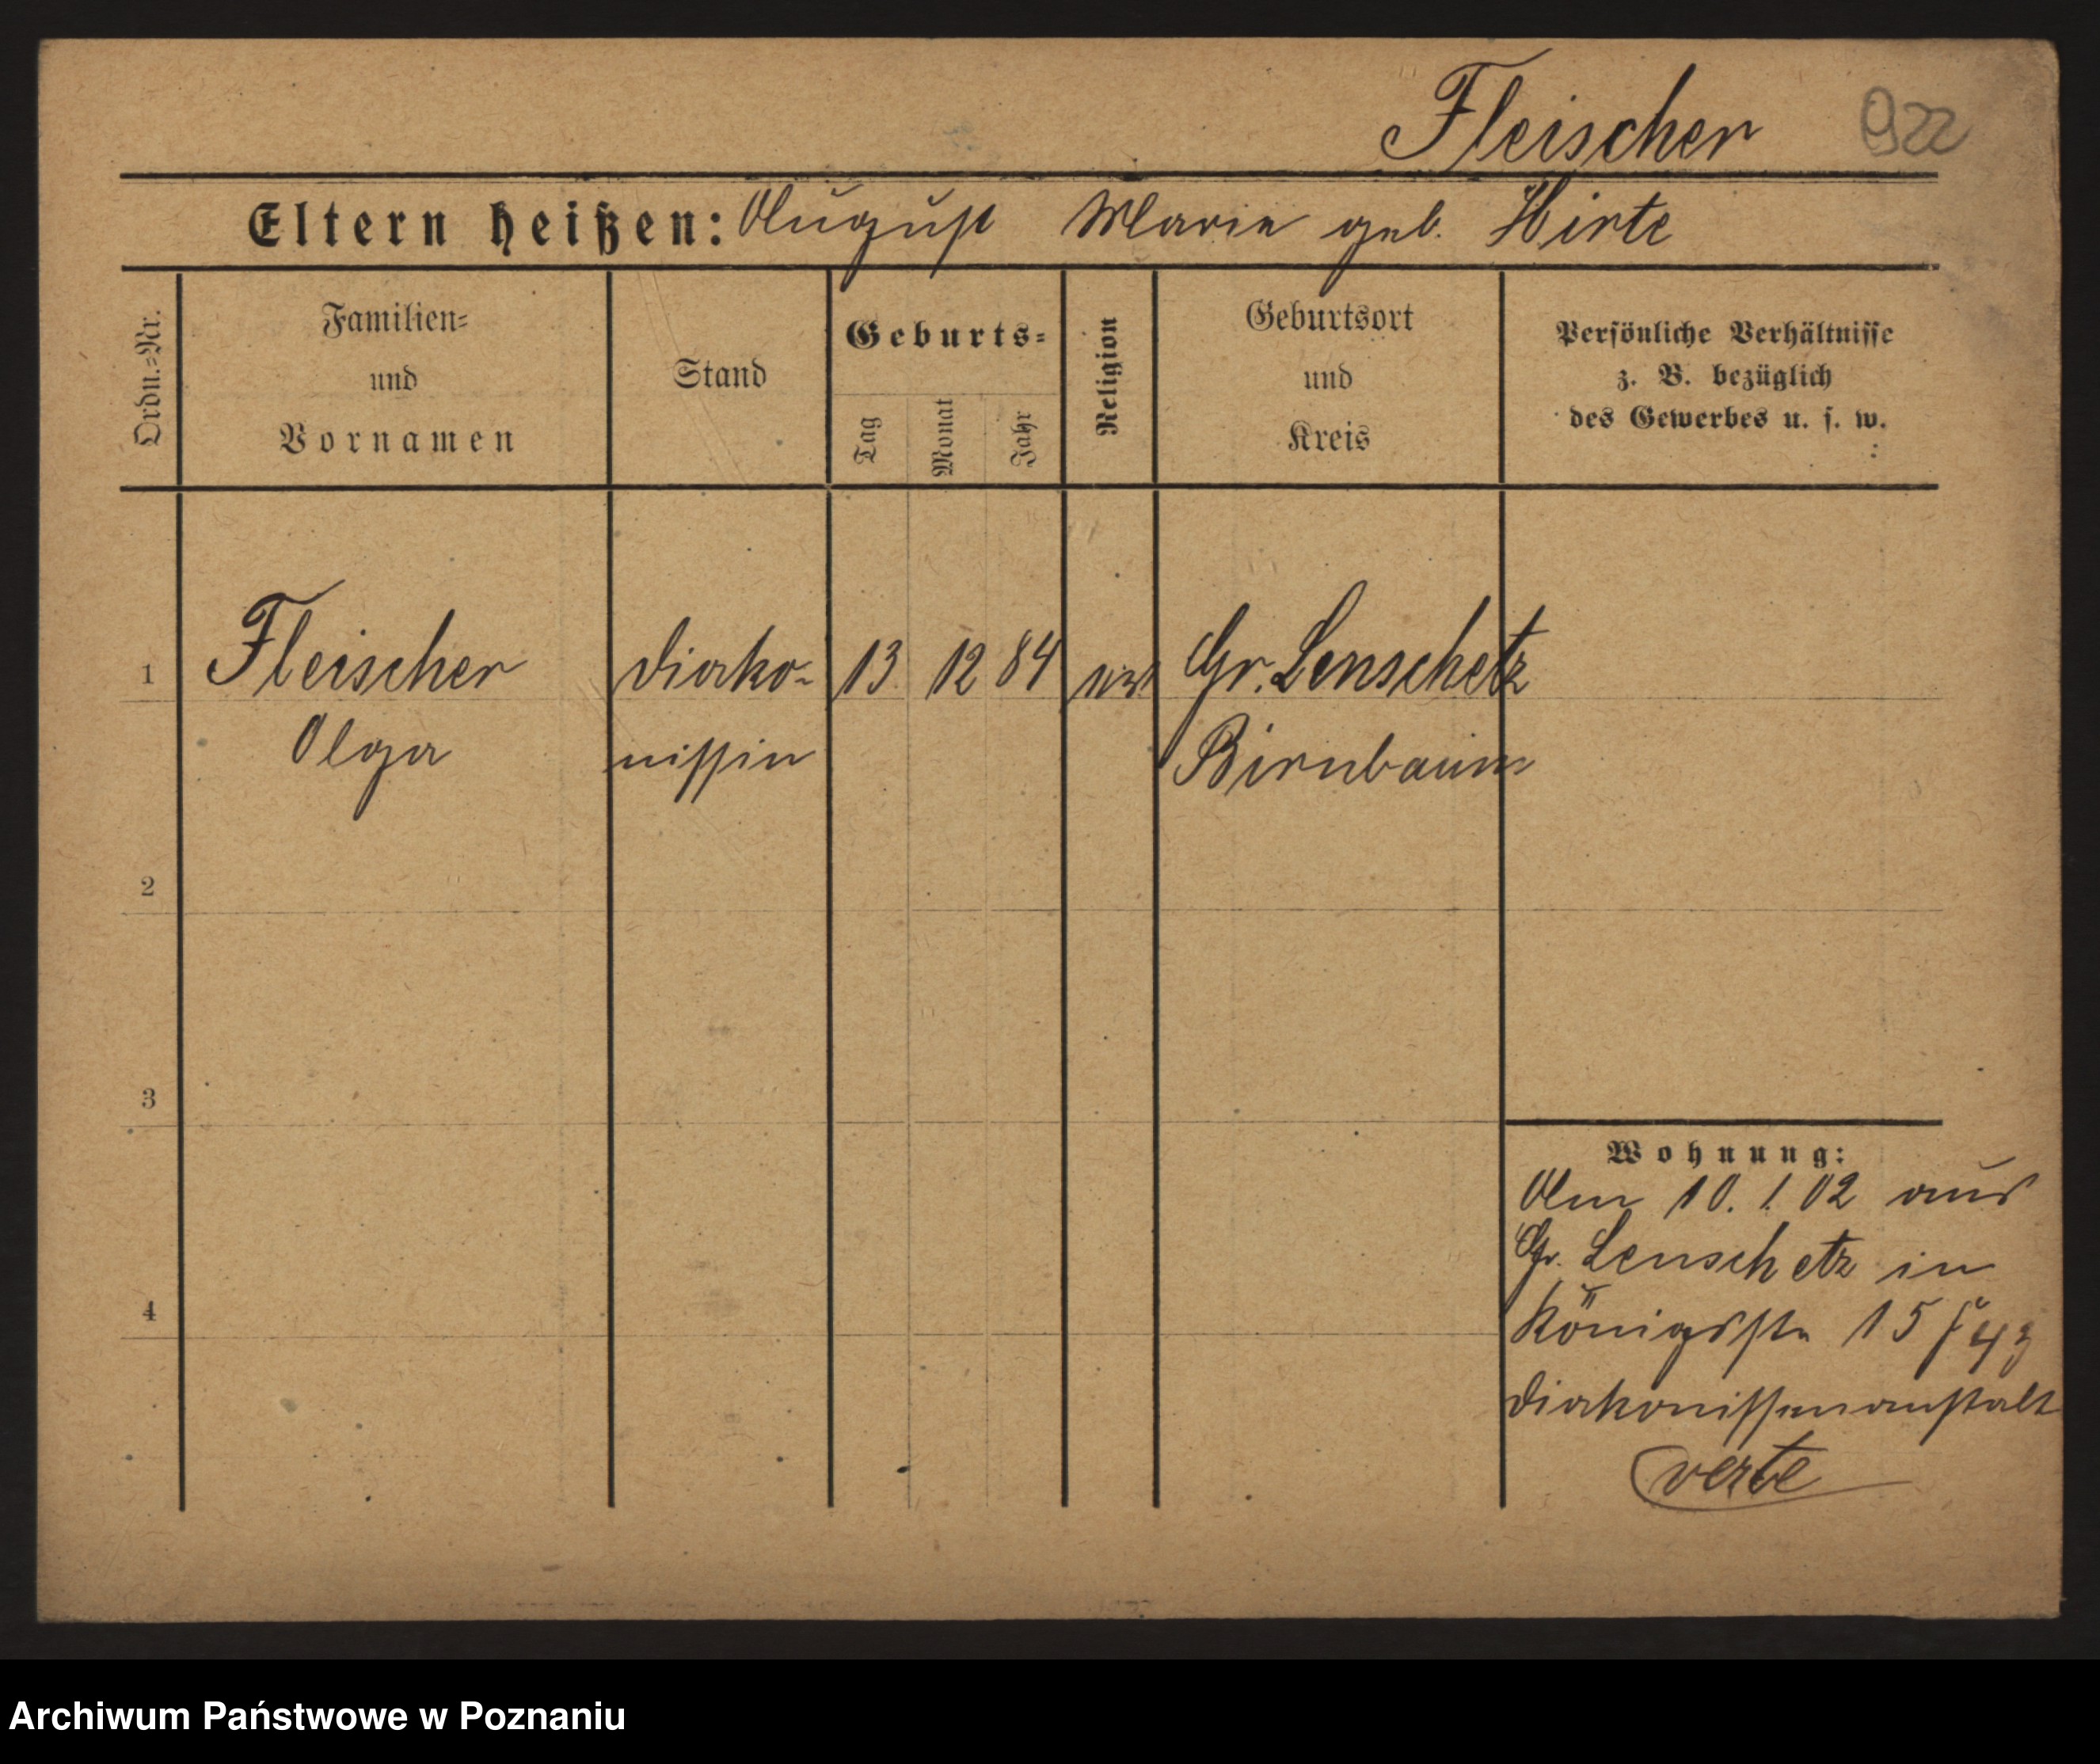 Fleischer 922
Eltern heißen: August Marie geb. Hirte
Ordn.=Nr.
Familien=
und
Vornamen
Stand
Geburts=
Tag
Monat
Jahr
Religion
Geburtsort
und
Kreis
Persönliche Verhältnisse
z. B. bezüglich
des Gewerbes u. s. w.
1 Fleischer Diako- 13 12 84 Gr. Lenschetz
Olga nissin Birnbaum
2
3
4
Wohnung:
Am 10. 1. 02 aus
Gr. Lenschetz in
Königsstr 15
Diakonissenanstalt
verte
Archiwum Państwowe w Poznaniu